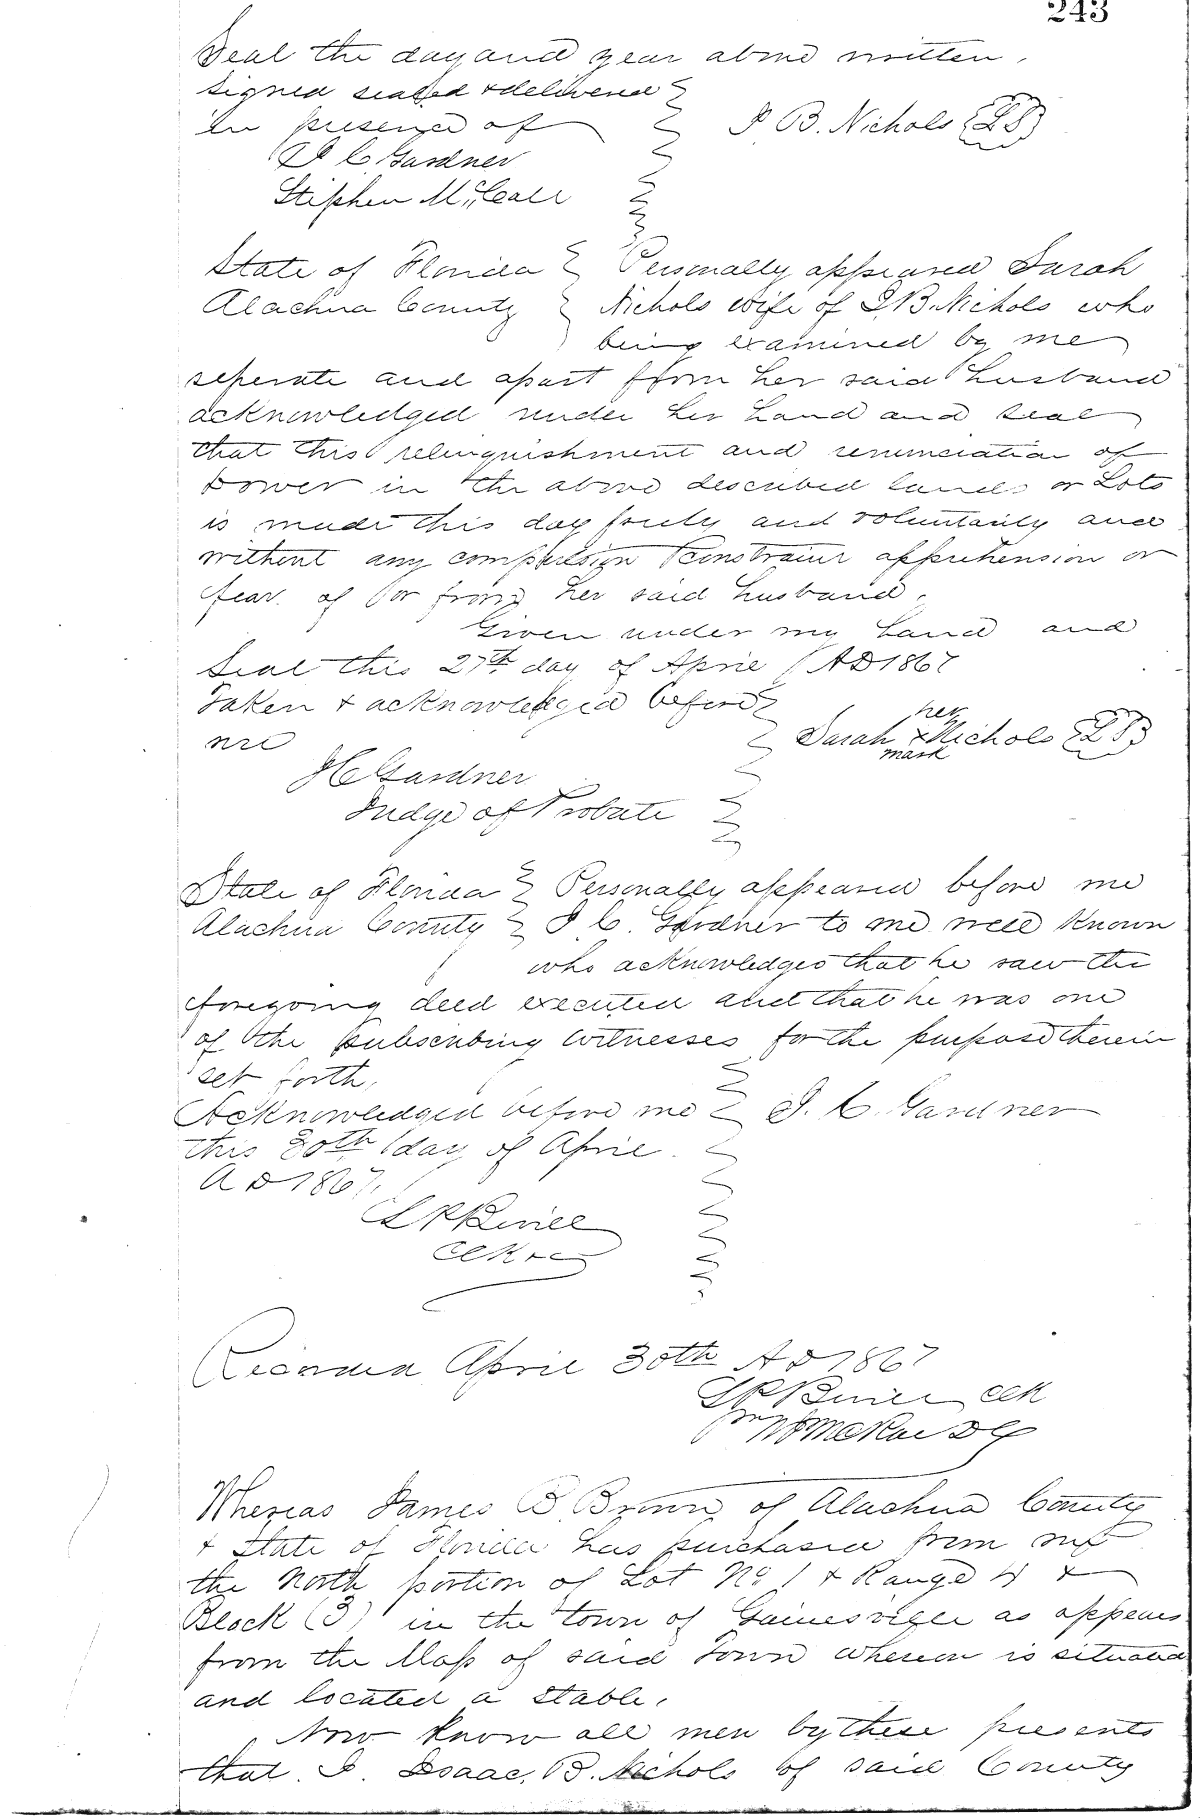 243
Seal the day and year above written.
Signed sealed & delivered
in presence of
I. B. Nichols (LS)
J C Gardner
Stephen McCall
State of Florida
Alachua County
Personally appeared Sarah
Nichols wife of I. B. Nichols who
being examined by me
seperate and apart from her said husband
acknowledged under her hand and seal
that this relinquishment and renunciation of
Dower in the above described lands or Lots
is made this day freely and voluntarily and
without any compulsion constraint apprehension or
fear of or from her said husband.
Given under my hand and
Seal this 27th day of April AD 1867
Taken & acknowledged before
me
her
Sarah x Nichols (LS)
mark
J C Gardner
Judge of Probate
State of Florida
Alachua County
Personally appeared before me
J. C. Gardner to me well known
who acknowledges that he saw the
foregoing deed executed and that he was one
of the subscribing witnesses for the purpose therein
set forth.
Acknowledged before me
this 30th day of April
AD 1867.
J. C. Gardner
Clk &c
Recorded April 30th AD 1867
Clk
McRae DC
Whereas James B Brown of Alachua County
& State of Florida has purchased from me
the North portion of Lot No 1 & Range 4 &
Block (3) in the town of Gainesville as appears
from the Map of said Town whereon is situated
and located a stable.
Now know all men by these presents
that I. Isaac. B. Nichols of said County